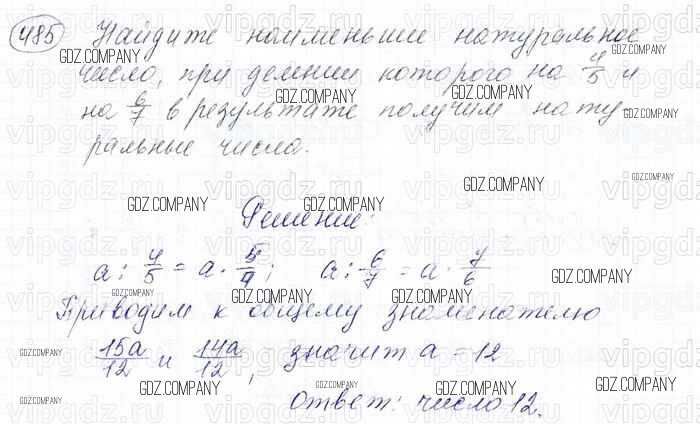 485 Найдите наименьшее натуральное
число, при делении которого на 4/5 и
на 6/7 в результате получим нату
ральные числа.
Решение:
a : 4/5 = a · 5/4; a : 6/7 = a · 7/6
Приводим к общему знаменателю
15a/12 и 14a/12, значит a = 12
Ответ: число 12.
GDZ.COMPANY
vipgdz.ru